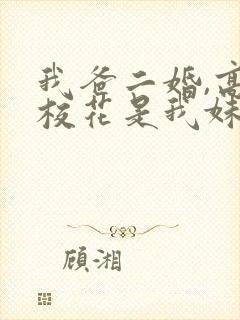 我爸二婚,高
校花是我妹
顾湘